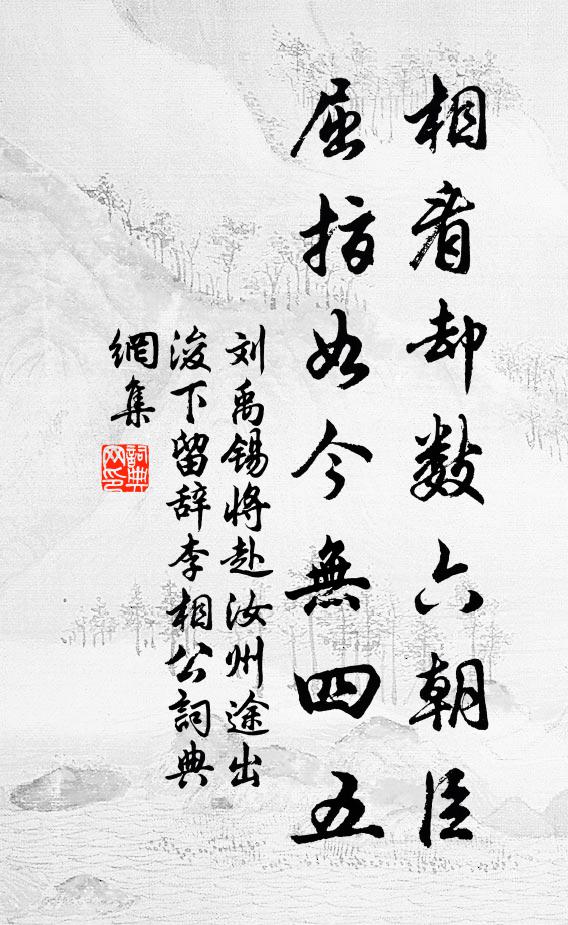 相看却數六朝臣
屈指如今無四五
刘禹锡将赴汝州途出
浚下留辞李相公詞典
網集
詞典
网印